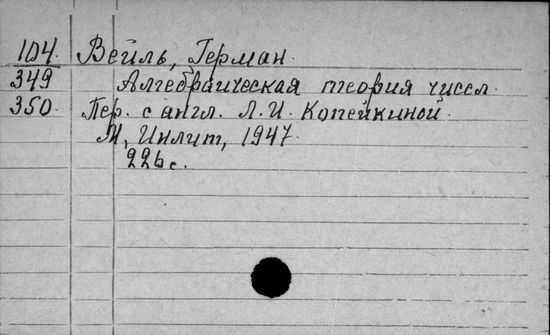 104. Вейль, Герман.
349 Алгебраическая теория чисел.
350 Пер. с англ. Л.И. Копейкиной.
М, Инлит, 1947.
226 с.